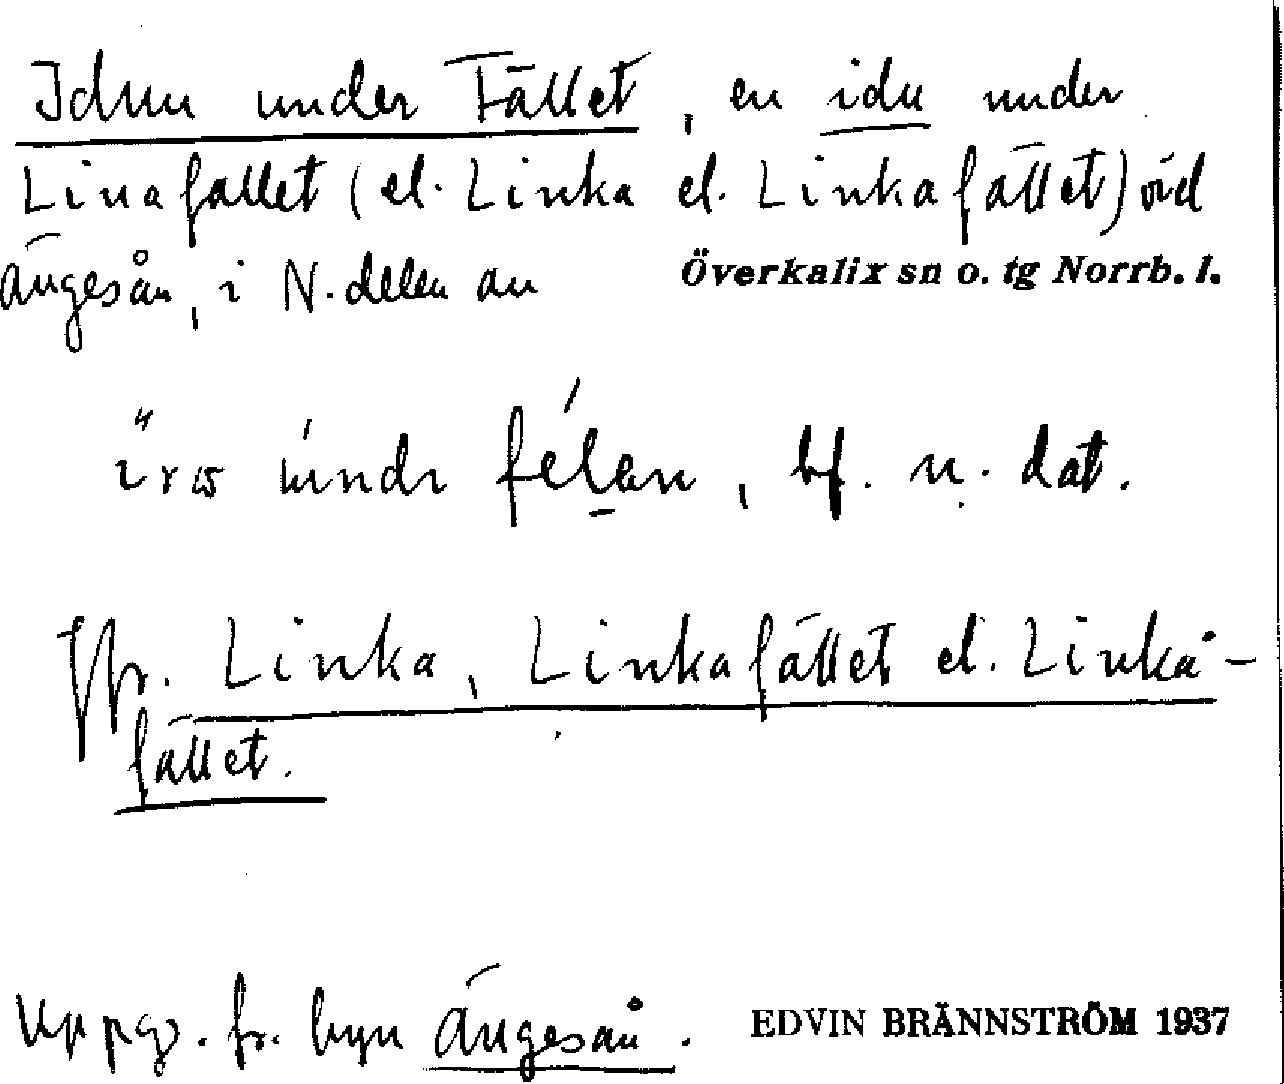 Idun under Fället, en idu under
Linafallet (el. Linka el. Linkafället) vid
Ängesån, i N. delen av Överkalix sn o. tg Norrb. l.
undr félan, bf. n. dat.
Jfr. Linka, Linkafället el. Linkå-
fället.
Uppg. fr. byn Ängeså. EDVIN BRÄNNSTRÖM 1937